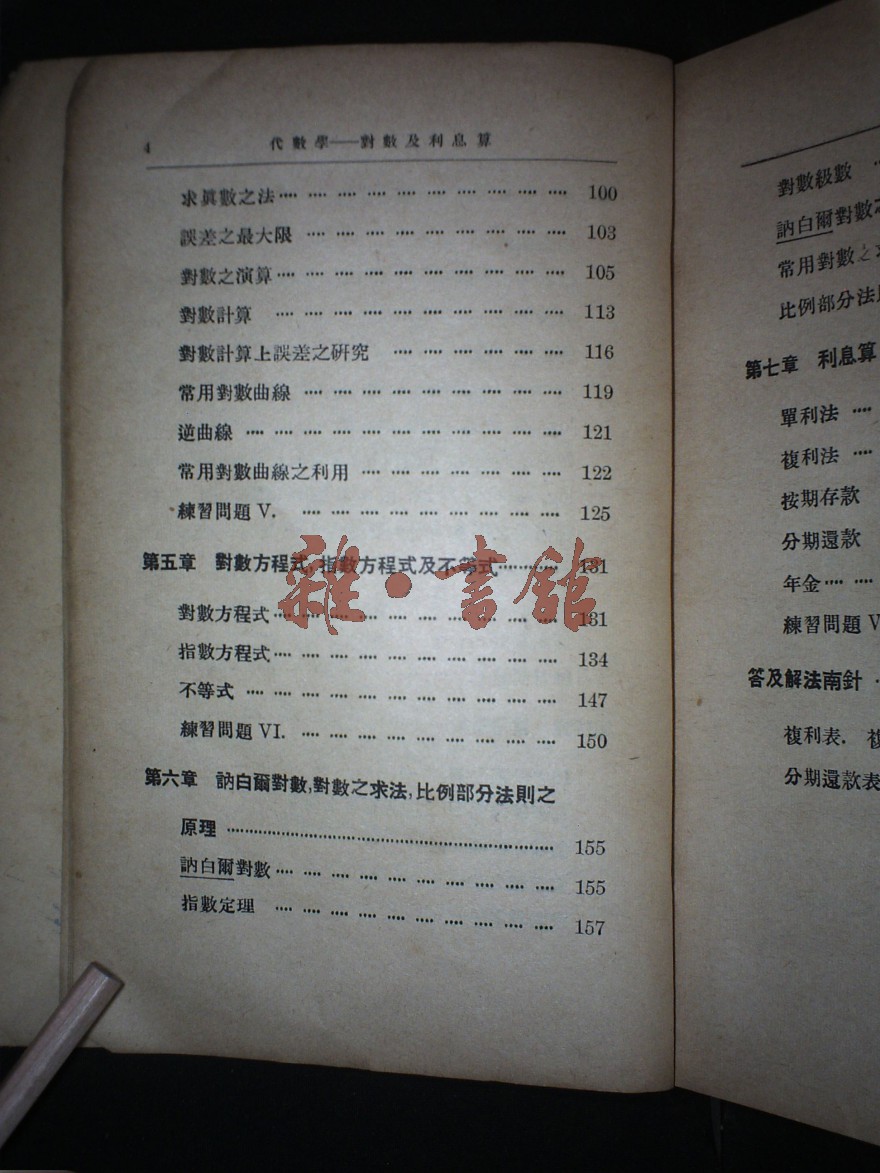 4 代數學——對數及利息算
求眞數之法 …… 100
誤差之最大限 …… 103
對數之演算 …… 105
對數計算 …… 113
對數計算上誤差之研究 …… 116
常用對數曲線 …… 119
逆曲線 …… 121
常用對數曲線之利用 …… 122
練習問題 V. …… 125
第五章 對數方程式,指數方程式及不等式 …… 131
對數方程式 …… 131
指數方程式 …… 134
不等式 …… 147
練習問題 VI. …… 150
第六章 訥白爾對數,對數之求法,比例部分法則之
原理 …… 155
訥白爾對數 …… 155
指數定理 …… 157
雜·書館
對數級數 …
訥白爾對數
常用對數之
比例部分法
第七章 利息算
單利法 …
複利法 …
按期存款
分期還款
年金 ……
練習問題 V
答及解法南針
複利表.
分期還款表